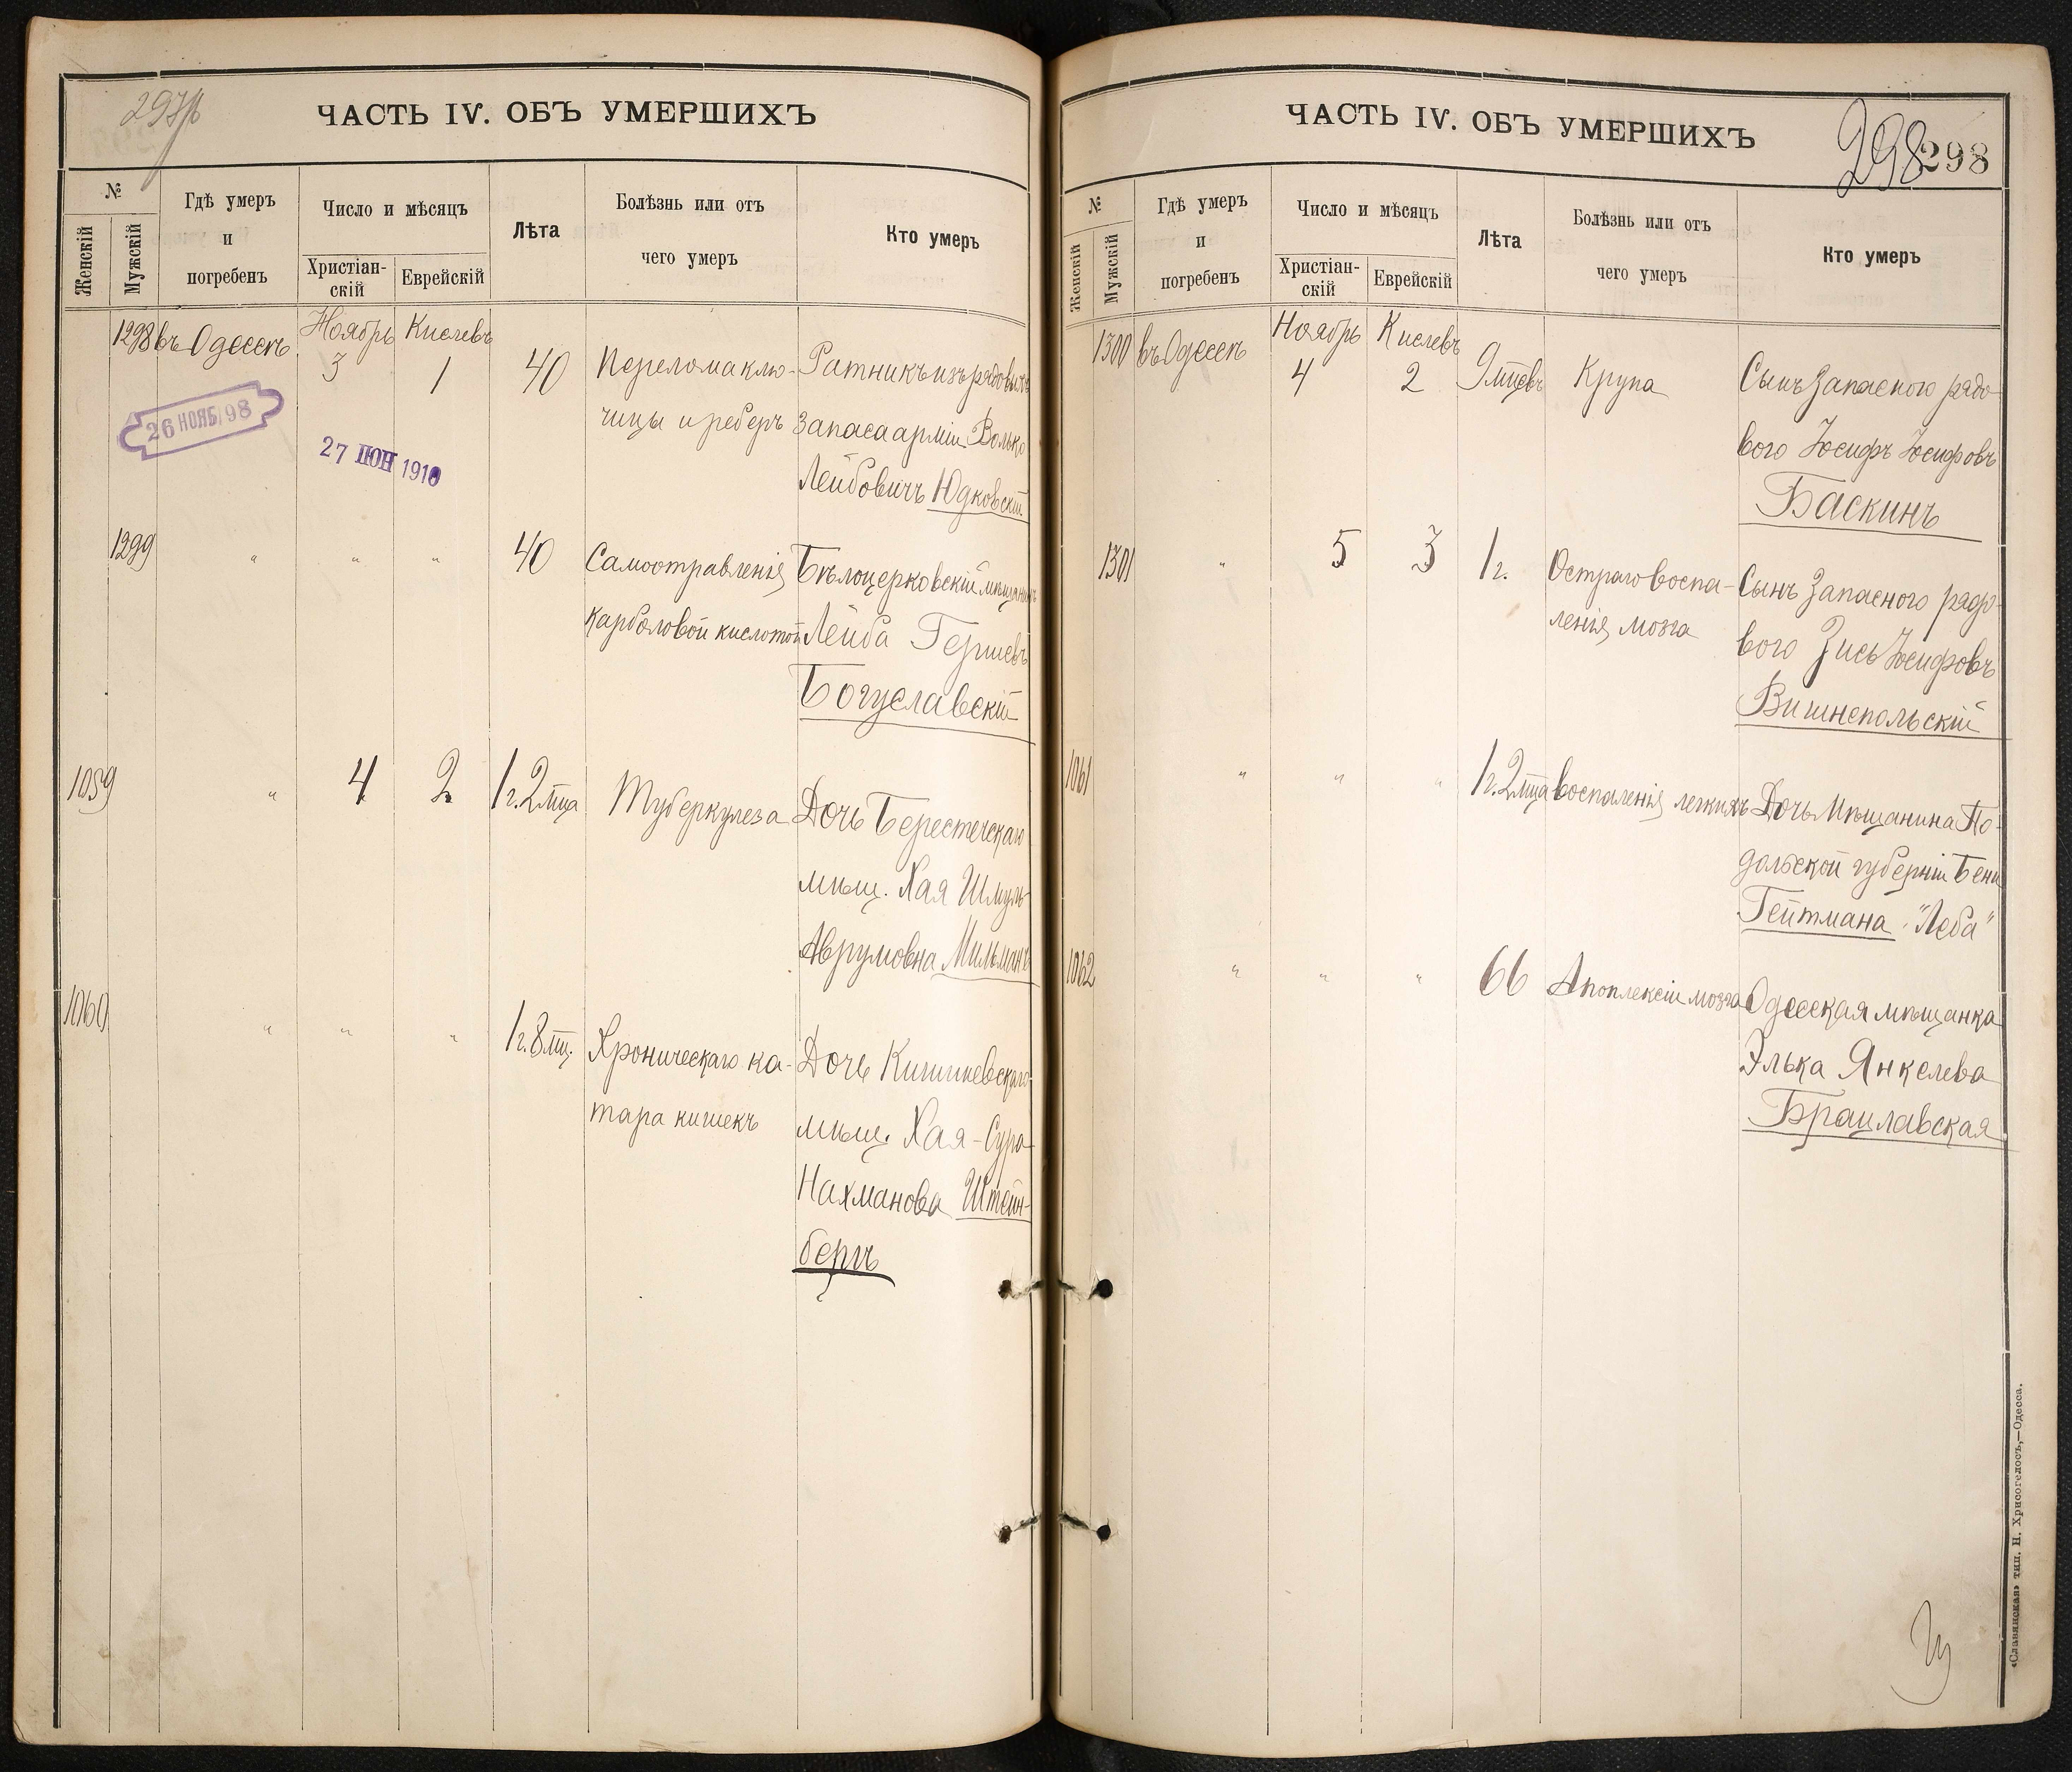 297
ЧАСТЬ IV. ОБЪ УМЕРШИХЪ
№
Женскій
Мужскій
Гдѣ умеръ
и
погребенъ
Число и мѣсяцъ
Христіан-
скій
Еврейскій
Лѣта
Болѣзнь или отъ
чего умеръ
Кто умеръ
1298 въ Одессѣ Ноябрь 3 Кислевъ 1 40 Перелома клю- Ратникъ изъ рядовыхъ
чицы и реберъ запаса арміи Волько
Лейбовичъ Юдковскій
26 НОЯБ. 98
27 ІЮН 1910
1299 " " " 40 Самоотравленія Бѣлоцерковскій мѣщанинъ
карболовой кислотой Лейба Гершевъ
Богуславскій
1059 " 4 2 1 г. 2 мца Туберкулеза Дочь Берестечскаго
мѣщ. Хая Шмуль
Аврумовна Мильманъ
1060 " " " 1 г. 8 мц. Хроническаго ка- Дочь Кишиневскаго
тара кишекъ мѣщ. Хая-Сура
Нахманова Штейн-
бергъ
ЧАСТЬ IV. ОБЪ УМЕРШИХЪ
298 298
№
Женскій
Мужскій
Гдѣ умеръ
и
погребенъ
Число и мѣсяцъ
Христіан-
скій
Еврейскій
Лѣта
Болѣзнь или отъ
чего умеръ
Кто умеръ
1300 въ Одессѣ Ноябрь 4 Кислевъ 2 9 мцевъ Крупа Сынъ Запасного рядо-
вого Іосифъ Іосифовъ
Баскинъ
1301 " 5 3 1 г. Остраго воспа- Сынъ Запасного рядо-
ленія мозга вого Зись Іосифовъ
Вишнепольскій
1061 " " " 1 г. 2 мца Воспаленія легкихъ Дочь Мѣщанина По-
дольской губерніи Бени
Гейтмана "Леба"
1062 " " " 66 Апоплексіи мозга Одесская мѣщанка
Элька Янкелева
Брацлавская
«Славянская» тип. Н. Хрисогелосъ,—Одесса.